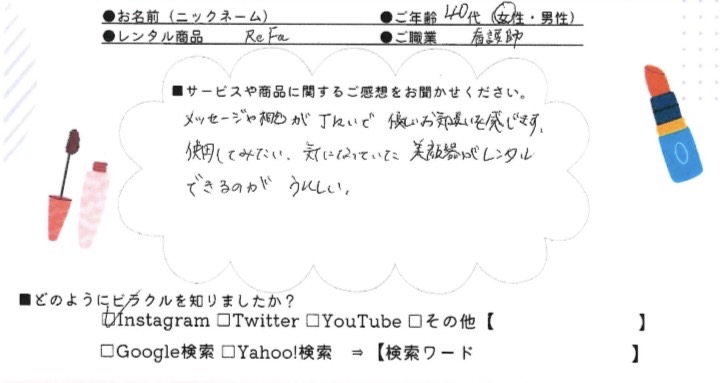 ●お名前（ニックネーム） ●ご年齢 40代 （女性・男性）
●レンタル商品 ReFa ●ご職業 看護師
■サービスや商品に関するご感想をお聞かせください。
メッセージや梱包が丁ねいで 優しいお気遣いを感じます。
使用してみたい、気になっていた 美顔器がレンタル
できるのが うれしい。
■どのようにビラクルを知りましたか？
☑Instagram □Twitter □YouTube □その他【 】
□Google検索 □Yahoo!検索 ⇒【検索ワード 】